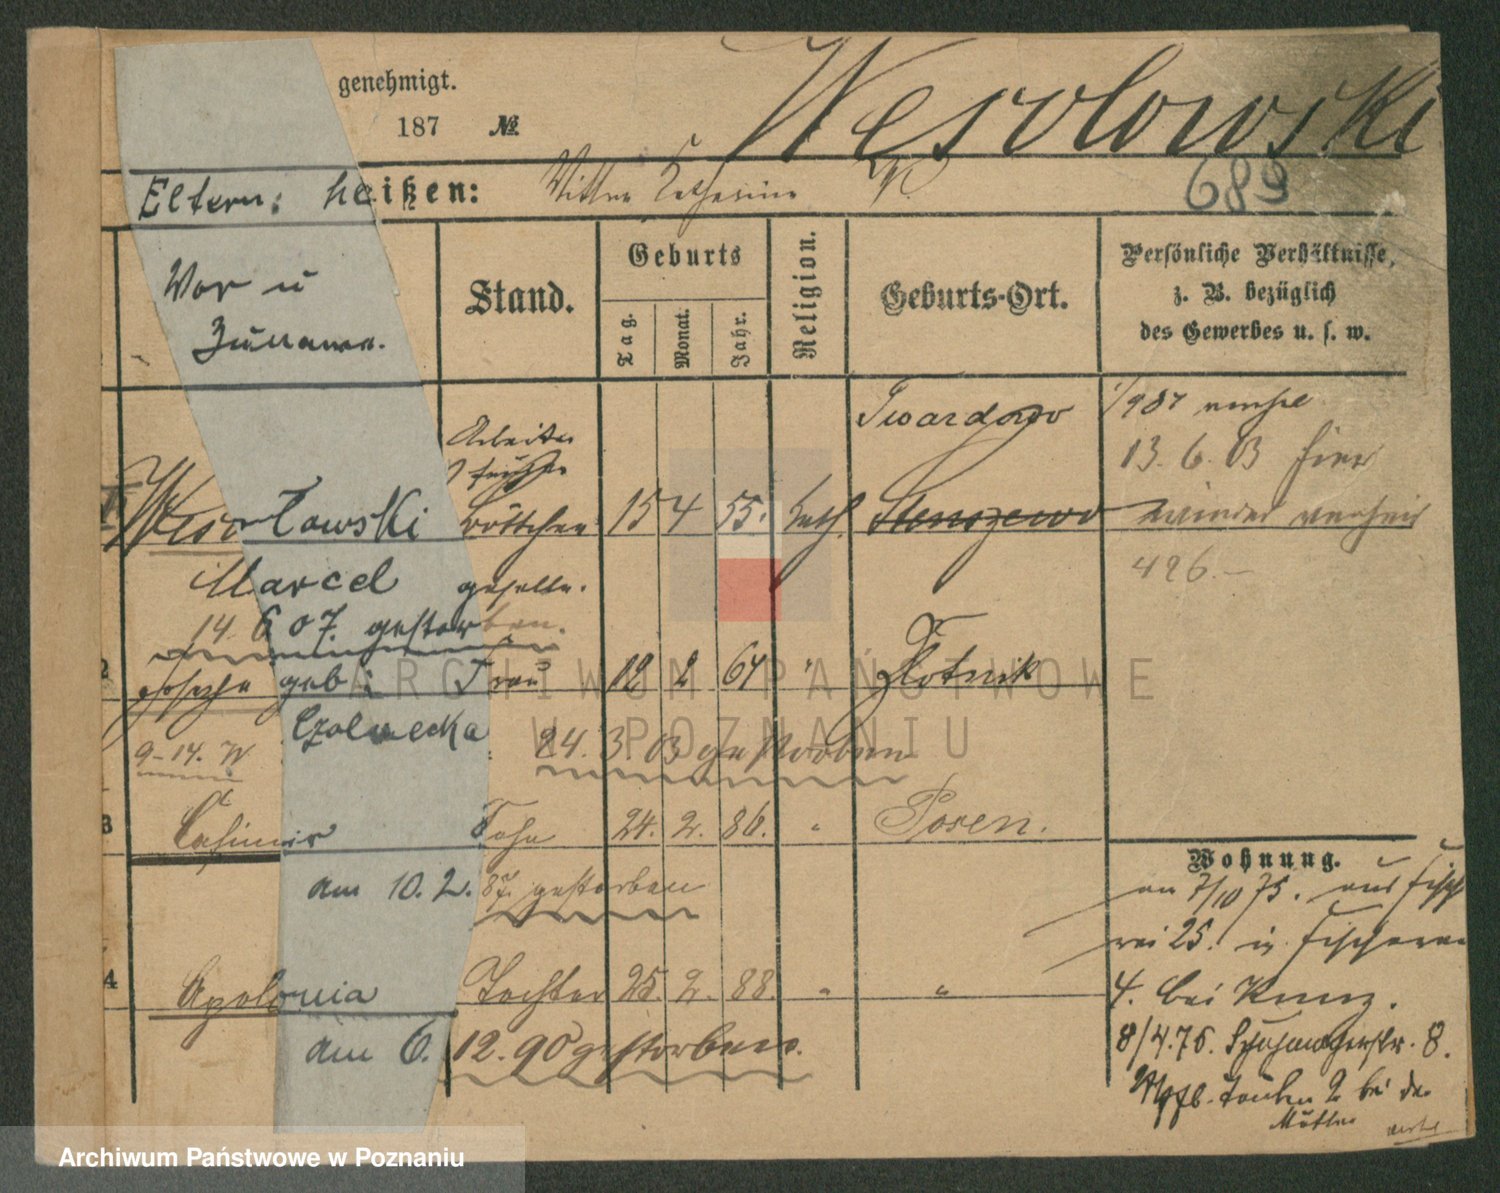 genehmigt.
Wesolowski
187 №
Eltern: heißen: Wittwe Katharina
689
Vor u
Zuname.
Stand.
Geburts
Tag.
Monat.
Jahr.
Religion.
Geburts-Ort.
Persönliche Verhältnisse,
z. B. bezüglich
des Gewerbes u. s. w.
Twardowo
Arbeiter
früher
13. 6. 03 hier
Wesołowski Böttcher 15 4 55. kath. Stenszewo wieder
Marcel geselle.
426.-
14. 6 07. gestorben.
2 Josepha geb: Frau 12 2 64 " Złotnik
Czolnecka
9-14. W 24. 3. 03 gestorben
3 Casimir Sohn 24. 2. 86. " Posen.
am 10. 2. 87. gestorben
Wohnung.
an 7/10 75. aus Fisch
rei 25. in Fischerei
4 Apolonia Tochter 25. 2. 88. " "
4. bei Kunz.
am 6. 12. 90 gestorben.
8/4.76. 8.
2 bei der
Mutter
ARCHIWUM PAŃSTWOWE
W POZNANIU
Archiwum Państwowe w Poznaniu